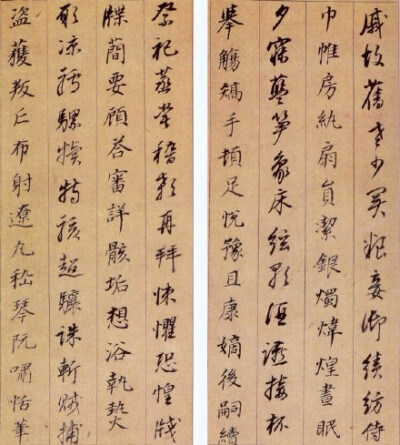 戚故舊老少異粮妾御績紡侍
巾帷房紈扇員潔銀燭煒煌晝眠
夕寐藍笋象床弦歌酒讌接杯
舉觴矯手頓足悅豫且康嫡後嗣續
祭祀蒸嘗稽顙再拜悚懼恐惶牋
牒簡要顧答審詳骸垢想浴執熱
願涼驢騾犢特駭超驤誅斬賊捕
盜獲叛亡布射遼丸嵇琴阮嘯恬筆